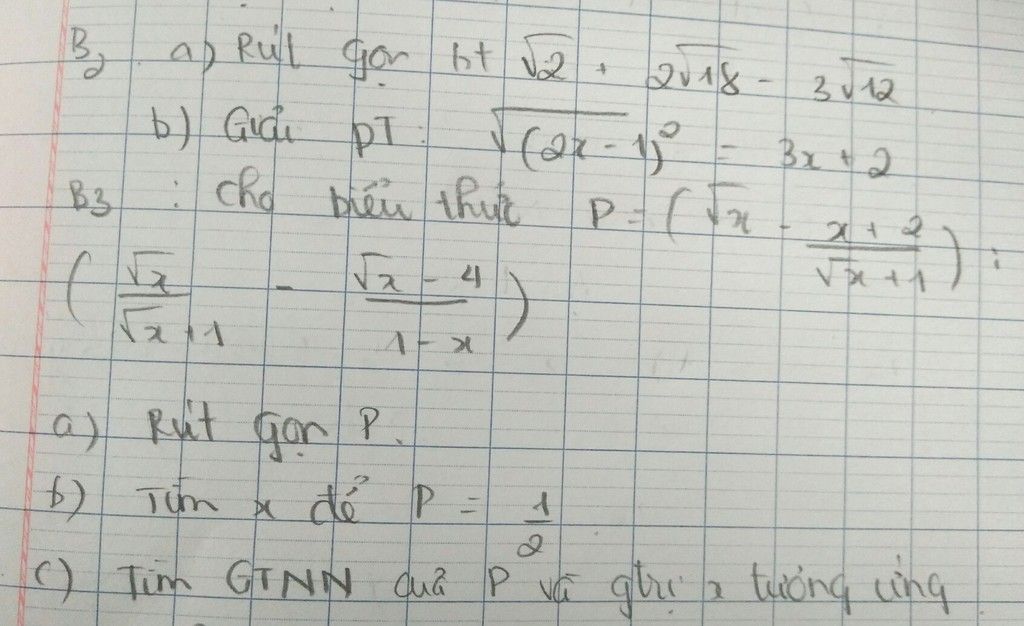 B2 a) Rút gọn bt √2 + 2√18 - 3√12
b) Giải PT: √(2x - 1)² = 3x + 2
B3 : Cho biểu thức P = (√x - (x + 2)/(√x + 1)) :
(√x/(√x + 1) - (√x - 4)/(1 - x))
a) Rút gọn P.
b) Tìm x để P = 1/2
c) Tìm GTNN của P và gtrị x tương ứng